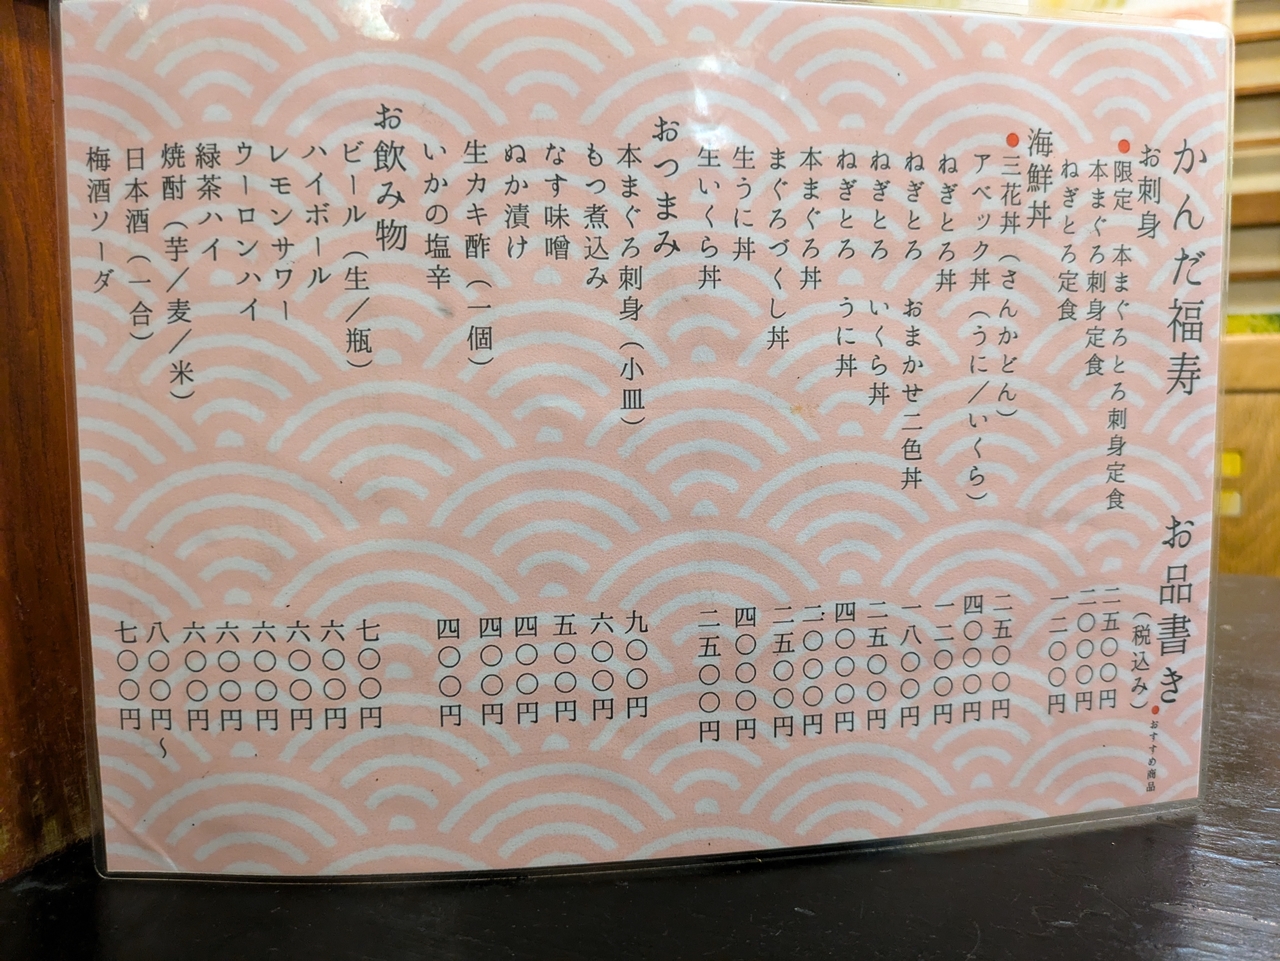 かんだ福寿 お品書き ●おすすめ商品
お刺身 （税込み）
●限定 本まぐろとろ刺身定食 二五〇〇円
本まぐろ刺身定食 二〇〇〇円
ねぎとろ定食 一二〇〇円
海鮮丼
●三花丼（さんかどん） 二五〇〇円
アベック丼（うに／いくら） 四〇〇〇円
ねぎとろ丼 一二〇〇円
ねぎとろ おまかせ二色丼 一八〇〇円
ねぎとろ いくら丼 二五〇〇円
ねぎとろ うに丼 四〇〇〇円
本まぐろ丼 二〇〇〇円
まぐろづくし丼 二五〇〇円
生うに丼 四〇〇〇円
生いくら丼 二五〇〇円
おつまみ
本まぐろ刺身（小皿） 九〇〇円
もつ煮込み 六〇〇円
なす味噌 五〇〇円
ぬか漬け 四〇〇円
生カキ酢（一個） 四〇〇円
いかの塩辛 四〇〇円
お飲み物
ビール（生／瓶） 七〇〇円
ハイボール 六〇〇円
レモンサワー 六〇〇円
ウーロンハイ 六〇〇円
緑茶ハイ 六〇〇円
焼酎（芋／麦／米） 六〇〇円
日本酒（一合） 八〇〇円〜
梅酒ソーダ 七〇〇円